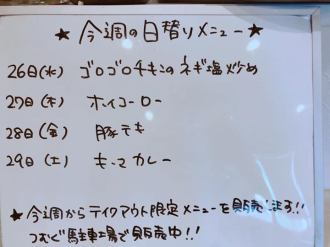 ★今週の日替りメニュー★
26日(水) ゴロゴロチキンのネギ塩炒め
27日(木) ホイコーロー
28日(金) 豚テキ
29日(土) キーマカレー
★今週からテイクアウト限定メニューを販売します!!
つむぐ駐車場で販売中!!